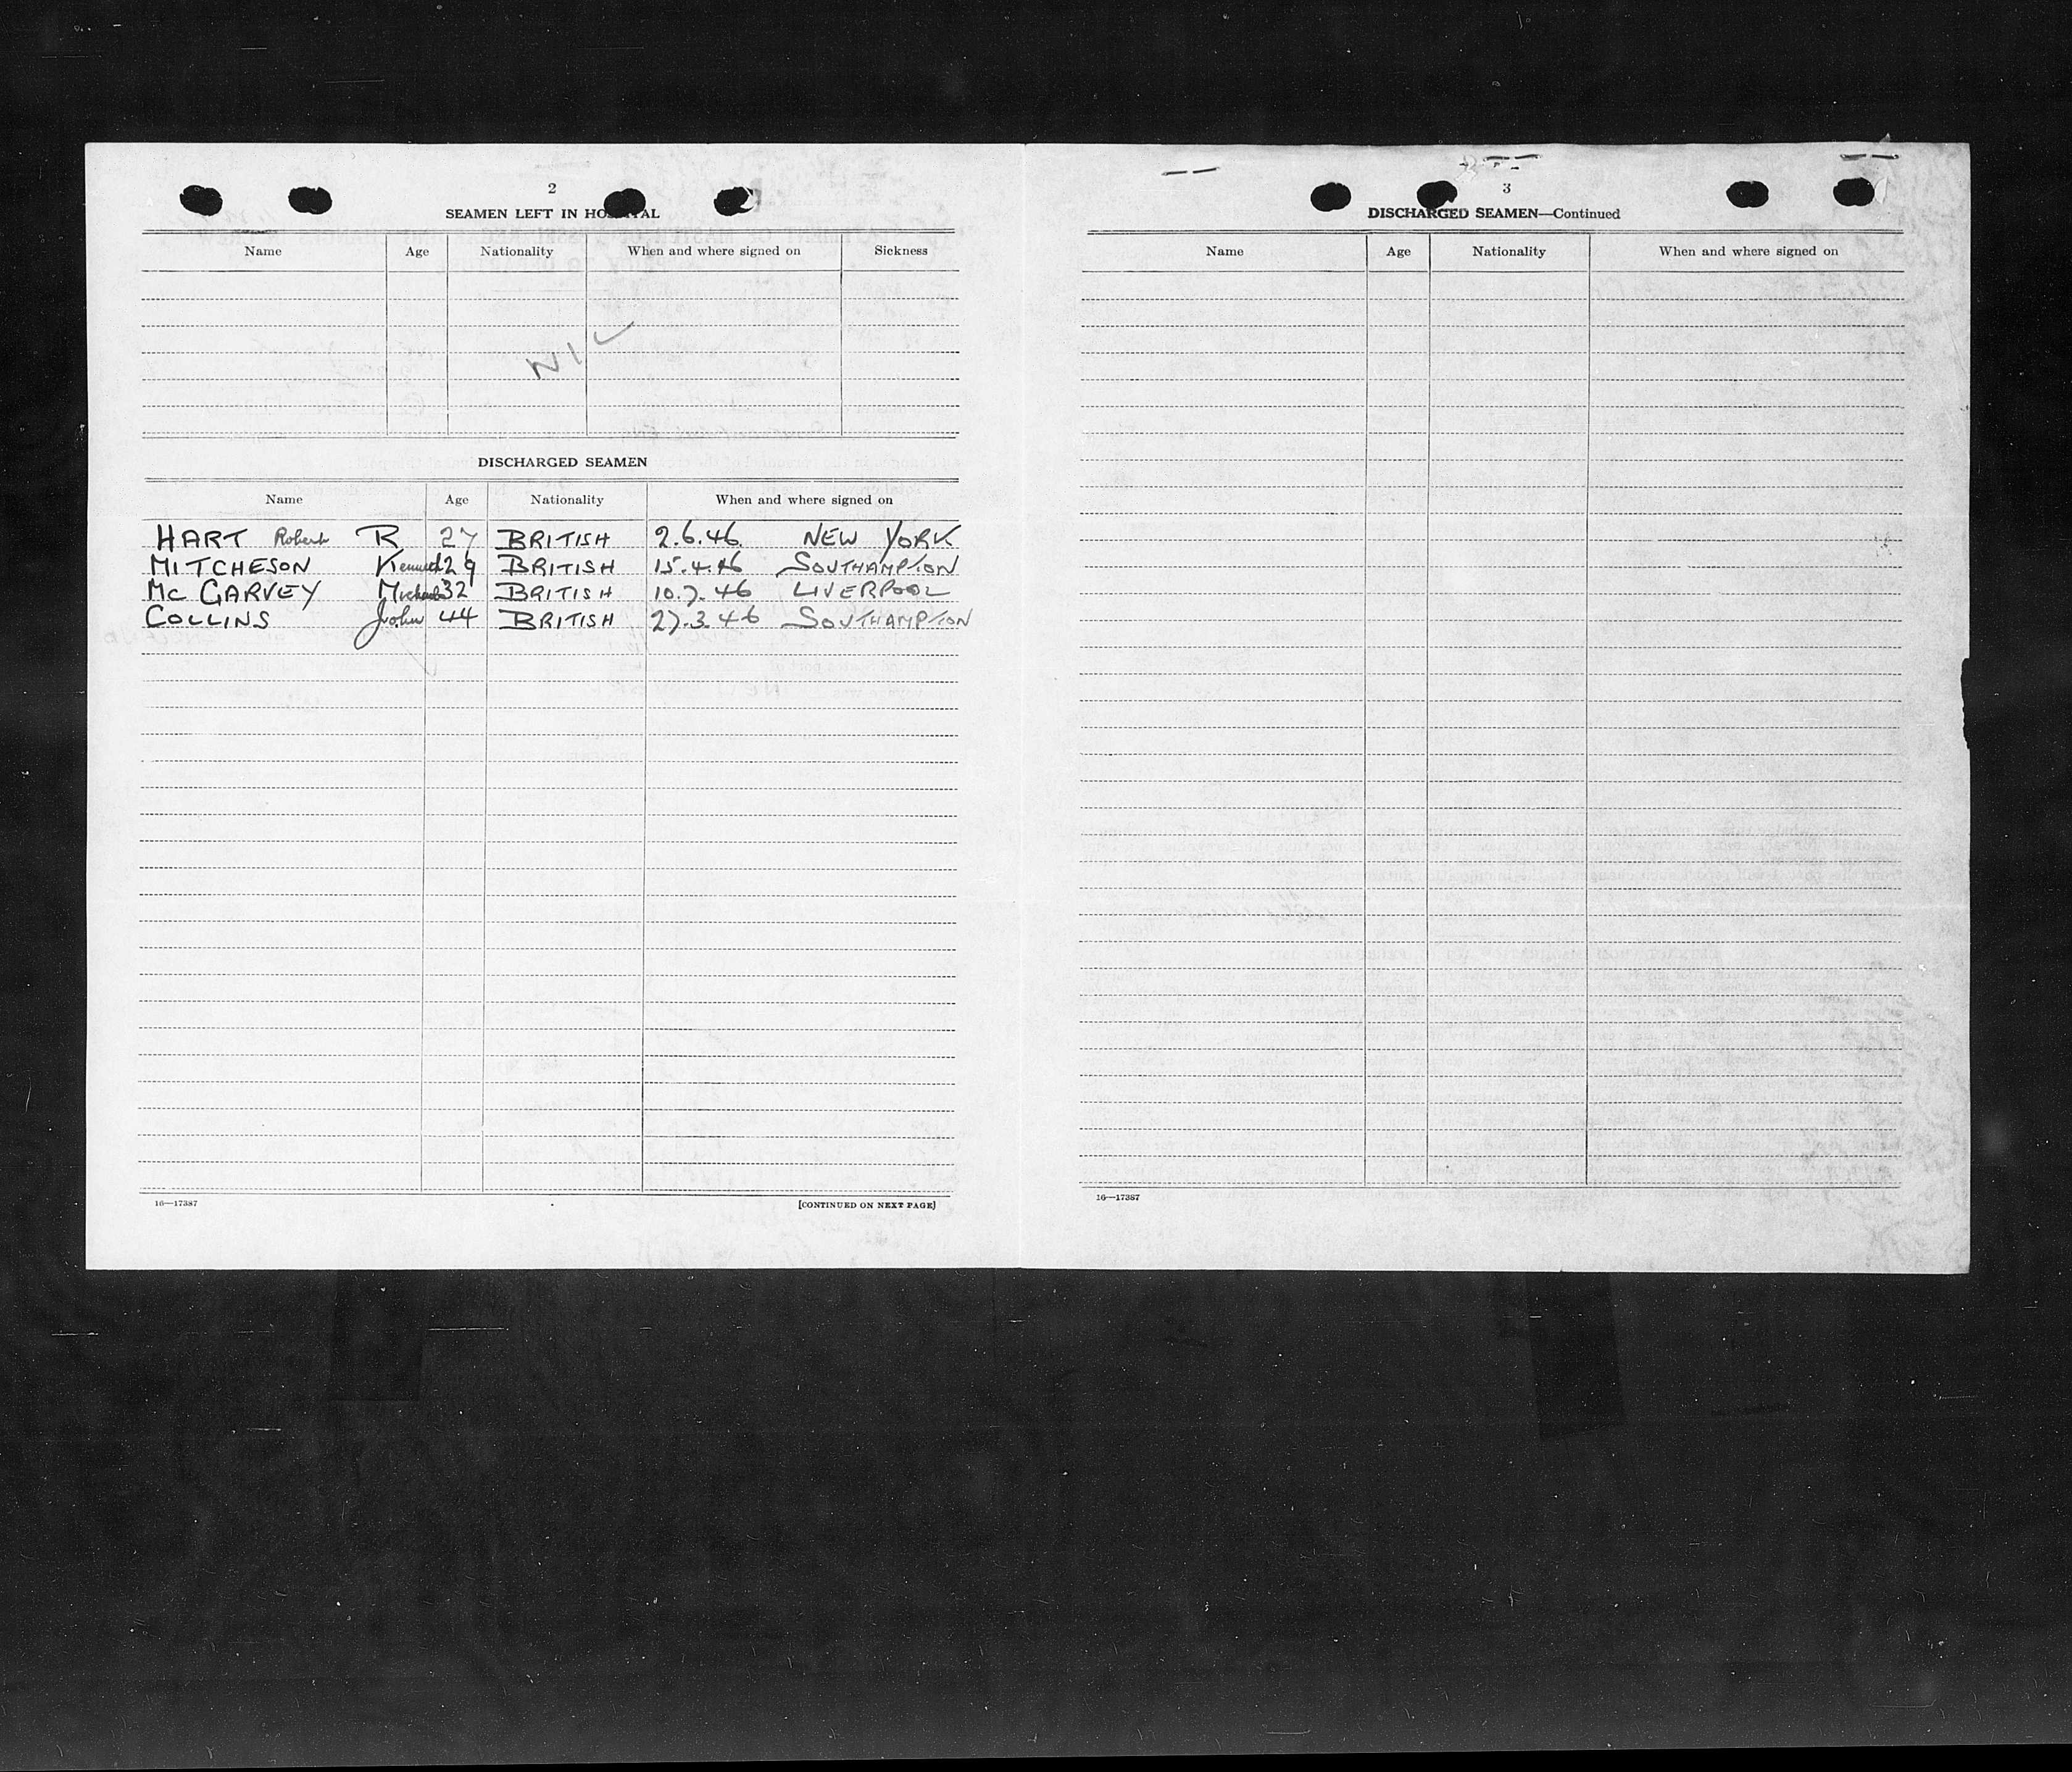 2
SEAMEN LEFT IN HOSPITAL
Name Age Nationality When and where signed on Sickness
NIL
DISCHARGED SEAMEN
Name Age Nationality When and where signed on
HART Robert R 27 BRITISH 2.6.46. NEW YORK
MITCHESON Kenneth 29 BRITISH 15.4.46 SOUTHAMPTON
Mc GARVEY Michael 32 BRITISH 10.7.46 LIVERPOOL
COLLINS John 44 BRITISH 27.3.46 SOUTHAMPTON
16—17387 [CONTINUED ON NEXT PAGE]
3
DISCHARGED SEAMEN—Continued
Name Age Nationality When and where signed on
16—17387